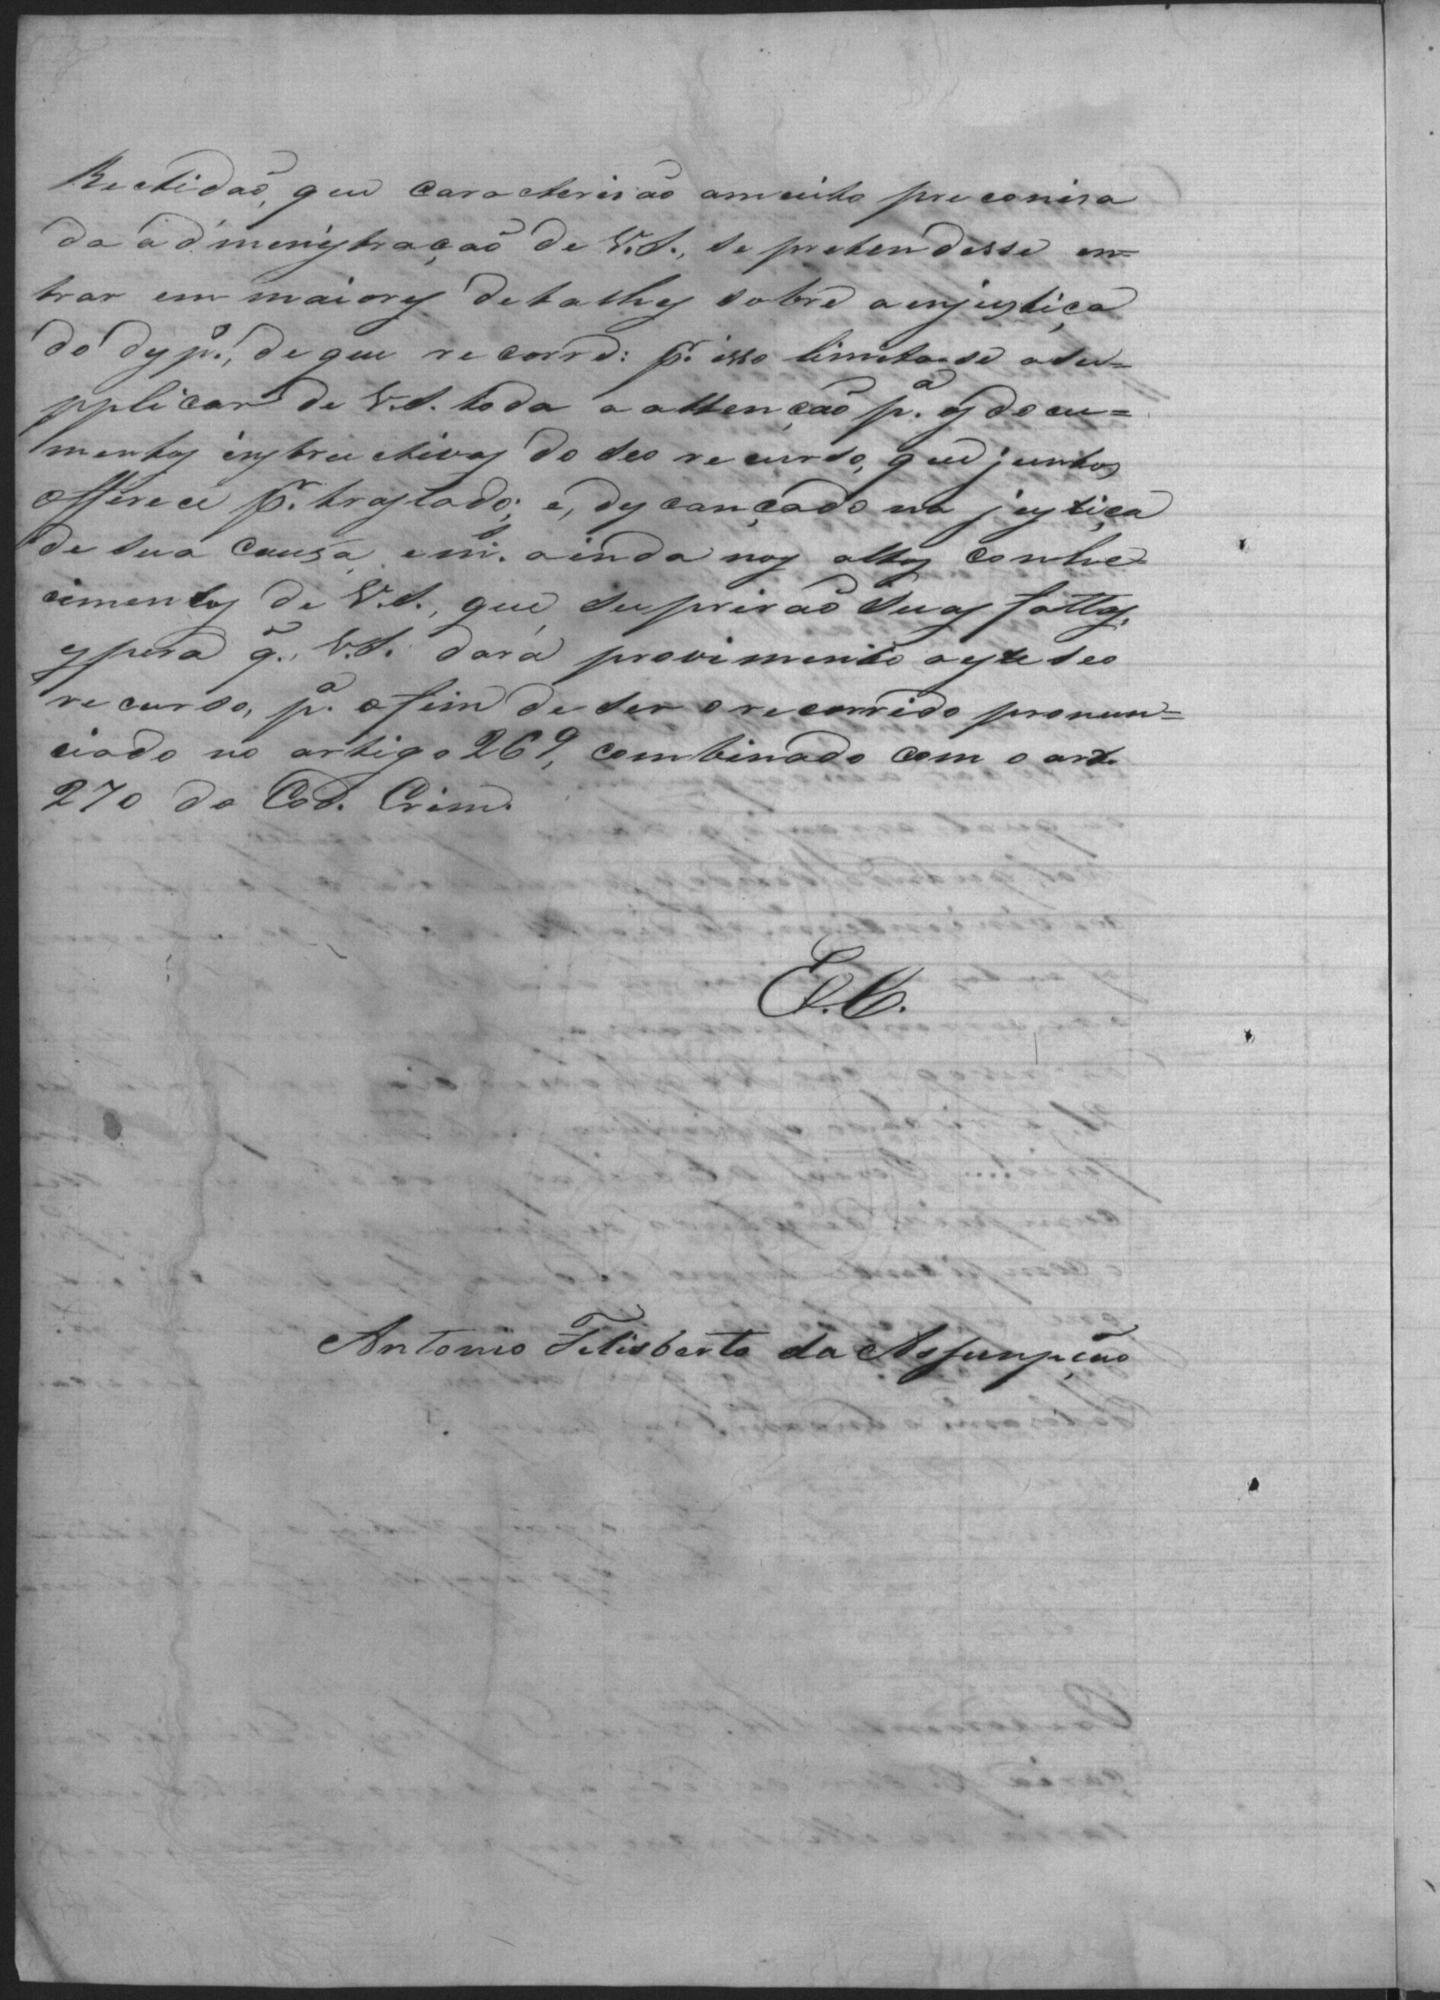 Rectidão, que caracterisão amuito preconisa
da administração de V.S., se pretendesse en-
trar em maiores detalhes sobre a injustiça
do desp.º, de que recorre: p.r isso limita-se a su-
pplicar de V.S. toda a attenção p.ª os docu=
mentos instructivos do seo recurso, que juntos
offerece p.r traslado; e, descançado na justiça
de sua causa, e m.s ainda nos altos conhe-
cimentos de V.S., que suprirão suas faltas,
espera q. V.S. dará provimento a este seo
recurso, p.ª o fim de ser o recorrido pronun=
ciado no artigo 269, combinado com o art.
270 do Cod. Crim.
Antonio Felisberto da Assumpção